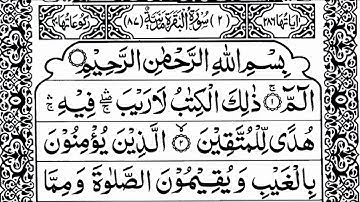 اٰیَاتُهَا ٢٨٦ (٢) سُوْرَةُ الْبَقَرَةِ مَدَنِیَّةٌ (٨٧) رُكُوْعَاتُهَا
بِسْمِ اللّٰهِ الرَّحْمٰنِ الرَّحِیْمِ
الٓمّٓ ۚ۝١ ذٰلِكَ الْكِتٰبُ لَا رَیْبَ ۛۖ فِیْهِ ۛۚ
هُدًی لِّلْمُتَّقِیْنَ ۝٢ الَّذِیْنَ یُؤْمِنُوْنَ
بِالْغَیْبِ وَ یُقِیْمُوْنَ الصَّلٰوةَ وَ مِمَّا